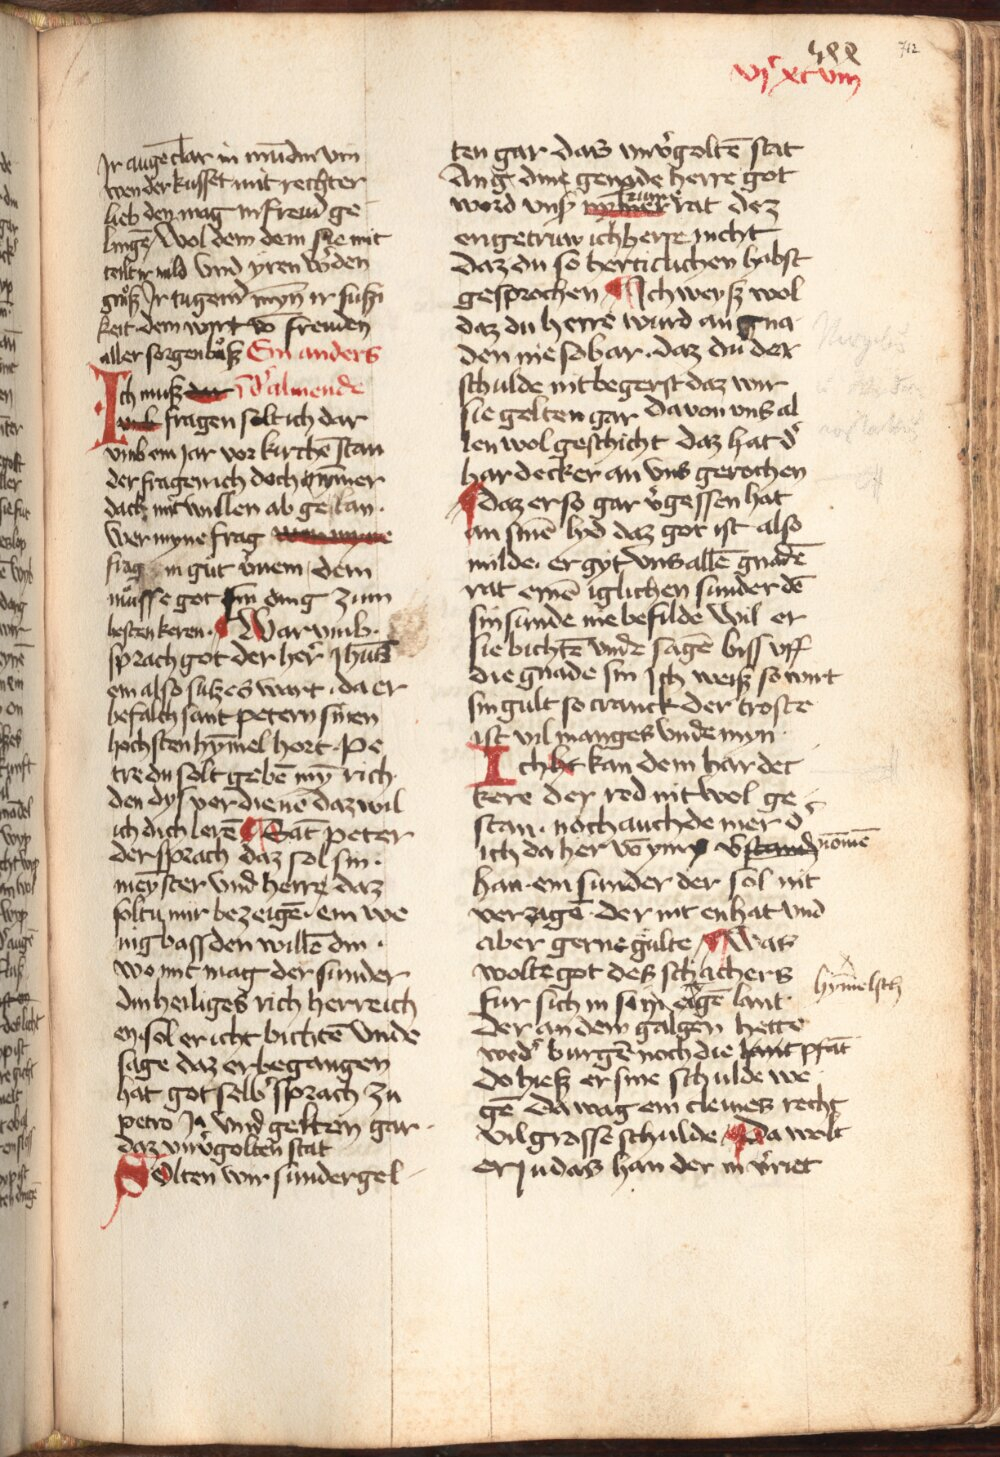 712
vjc xcviij
Ir auge clar in mūdin vin
wen der kusset mit rechter
lieb den mag in freud ge
lingē Wol dem dem sie mit
teilt ir mild Vnd yren w̄den
gruͦß Ir tugend myn̄ ir sußi
keit dem wyrt vō freuden
aller sorgen buͦß Ein anders
Ich muß der jn d̓ almende
vmb fragen solt ich dar
vmb em jar vor kirchē stan
der fragen ich doch nym̄er
dack mit willen ab gelan ·
wer myne frag wen myne
frag in guͦt v̓nem dem
muͦsse got sin ding zum
besten keren · War vmb ·
sprach got der her̄ Jhūs
em also suszes wart · da er
befalch sant petern sinen
hochsten hym̄el hort · Pe
tre du solt gebē my̅ rich
den dyß verdienē daz wil
ich dich lerē Sāt peter
der sprach daz sol sin ·
meyster vnd herre daz
soltu mir bezeigē · em we
nig bass den willē din ·
wo mit mag der sunder
din heiliges rich herreich
en sol er icht bichtē vnde
sage daz er begangen
hat got selb̓ sprach zu
petro Ja vnd gelten gar ·
daz vnv̓golten stat
Solten wir sunder gel
ten gar das vnv̓goltē stat
An g dine genode herre got
word vnß nymer zum̄er rat dez
engetruw ich herre nicht
daz du so herticlichen habst
gesprochen Ich weyß wol
daz du herre wurd an gna
den nie so bar · daz du der
schulde nit begerst daz wir
sie gelten gar Da von vns al
len wol geschicht daz hat d̓
hardecker an vns gerochen
daz er so gar v̓gessen hat
an sinē lyd daz got ist also
milde · er gyt vns allē gnadē
rat einē iglichen sunder dē
sin sunde nie befilde wil er
sie bichtē vnde sagē biss vff
die gnade sin Ich weiß so wirt
sin gult so cranck der troste
ist vil manges vnde myn
Ich he kan dem hardec
kere der red nit wol ge
stan · noch auch de mer d̓
ich da her vō ym v̓stand nom̄ē
han · em sunder der sol nit
verzagē · der nit en hat vnd
aber gerne gulte Was
wolte got des schachers
fur sich in sin eigē lant ·
hym̄elsch
der an dem galgen hette
wed̓ burgē noch die hant pfāt
do hieß er sine schulde we
gē da wag em cleines recht
vil grosse schulde Da wolt
er Judas han der in v̓riet